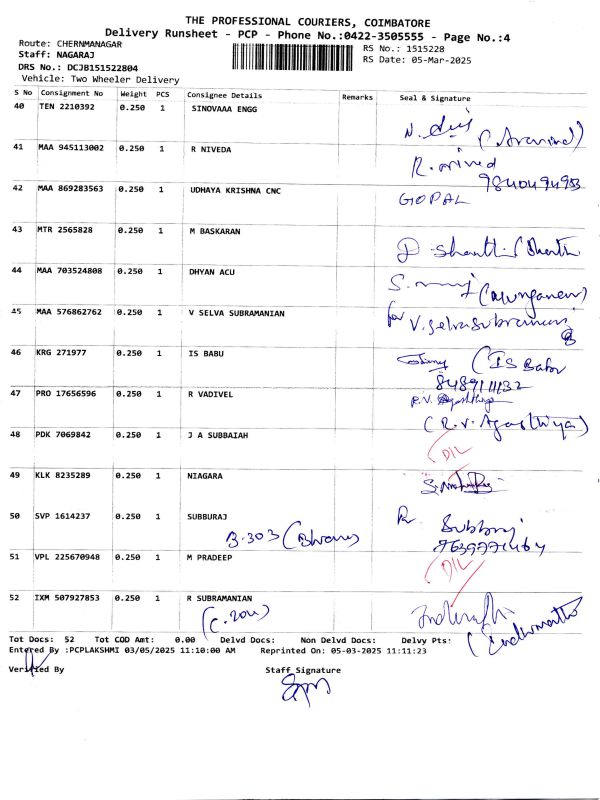 THE PROFESSIONAL COURIERS, COIMBATORE
Delivery Runsheet - PCP - Phone No.:0422-3505555 - Page No.:4
Route: CHERNMANAGAR RS No.: 1515228
Staff: NAGARAJ RS Date: 05-Mar-2025
DRS No.: DCJB151522804
Vehicle: Two Wheeler Delivery
S No Consignment No Weight PCS Consignee Details Remarks Seal & Signature
40 TEN 2210392 0.250 1 SINOVAAA ENGG
(Aravind)
41 MAA 945113002 0.250 1 R NIVEDA
42 MAA 869283563 0.250 1 UDHAYA KRISHNA CNC
GOPAL
43 MTR 2565828 0.250 1 M BASKARAN
44 MAA 703524808 0.250 1 DHYAN ACU
45 MAA 576862762 0.250 1 V SELVA SUBRAMANIAN
for V. Selva Subramani
46 KRG 271977 0.250 1 IS BABU
(IS Babu
8489111132
47 PRO 17656596 0.250 1 R VADIVEL
(R.V. Agasthiya)
48 PDK 7069842 0.250 1 J A SUBBAIAH
D/L
49 KLK 8235289 0.250 1 NIAGARA
50 SVP 1614237 0.250 1 SUBBURAJ
B-303
51 VPL 225670948 0.250 1 M PRADEEP
D/L
52 IXM 507927853 0.250 1 R SUBRAMANIAN
Tot Docs: 52 Tot COD Amt: 0.00 Delvd Docs: Non Delvd Docs: Delvy Pts:
Entered By :PCPLAKSHMI 03/05/2025 11:10:00 AM Reprinted On: 05-03-2025 11:11:23
Verified By Staff Signature